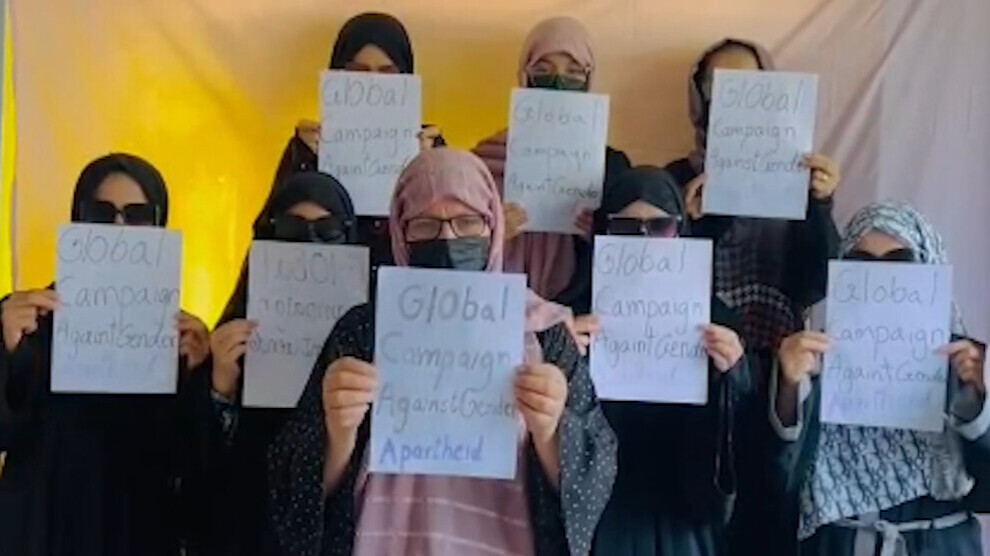 GlObal
Campaign
AgaintGender
Global
Campaign
AgaintGender
GlObal
Campaign
AgainstGender
Global
Campaign
AgaintGender
GlObal
Campaign
AgainstGender
Apartheid
Global
Campaign
AgaintGender
Global
Campaign
AgaintGender
Apartheid